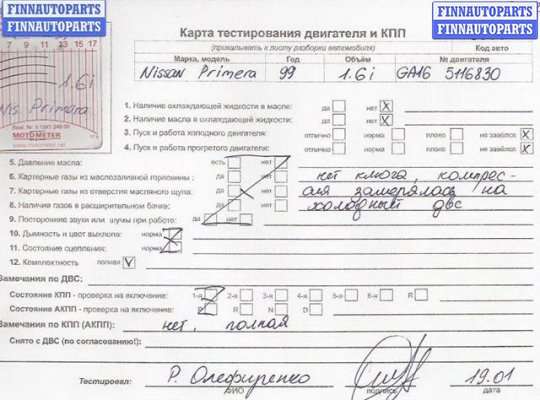 FINNAUTOPARTS
FINNAUTOPARTS
FINNAUTOPARTS
FINNAUTOPARTS
7 9 11 13 15 17
1.6i
Nis Primera
MOTOMETER
Карта тестирования двигателя и КПП
(прикалывать к листу разборки автомобиля)
Код авто
Марка, модель Год Объём № двигателя
Nissan Primera 99 1.6i GA16 5116830
1. Наличие охлаждающей жидкости в масле: да нет X
2. Наличие масла в охлаждающей жидкости: да нет X
3. Пуск и работа холодного двигателя: отлично норма плохо не завёлся X
4. Пуск и работа прогретого двигателя: отлично норма плохо не завёлся X
5. Давление масла: есть нет
6. Картерные газы из маслозаливной горловины: да нет нет ключа, компрес-
7. Картерные газы из отверстия масляного щупа: да нет сия замерялась на
8. Наличие газов в расширительном бачке: да нет холодный двс
9. Посторонние звуки или шумы при работе: да нет
10. Дымность и цвет выхлопа: норма
11. Состояние сцепления: норма
12. Комплектность полная V
Замечания по ДВС:
Состояние КПП - проверка на включение: 1-я 2-я 3-я 4-я 5-я 6-я R
Состояние АКПП - проверка на включение: P R N D
Замечания по КПП (АКПП): нет, полная
Снято с ДВС (по согласованию!):
Тестировал: Р. Олефиренко 19.01
ФИО подпись дата